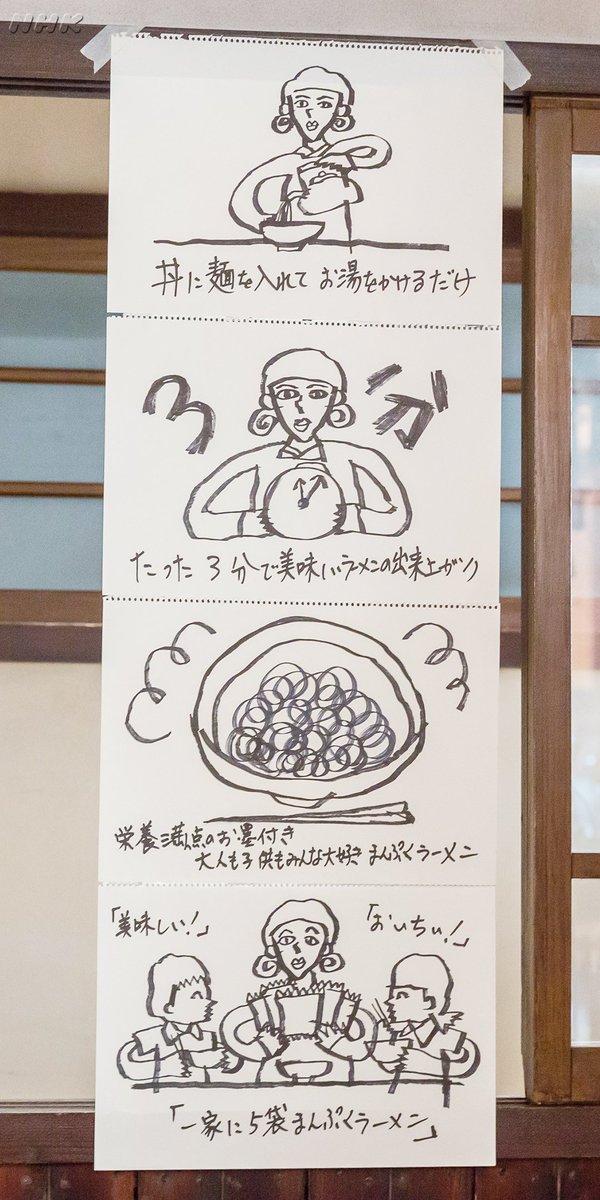 NHK
丼に麺を入れて お湯をかけるだけ
3分
たった3分で美味しいラーメンの出来上がり
栄養満点のお墨付き
大人も子供もみんな大好き まんぷくラーメン
「美味しい!」
「おいちい!」
「一家に5袋まんぷくラーメン」